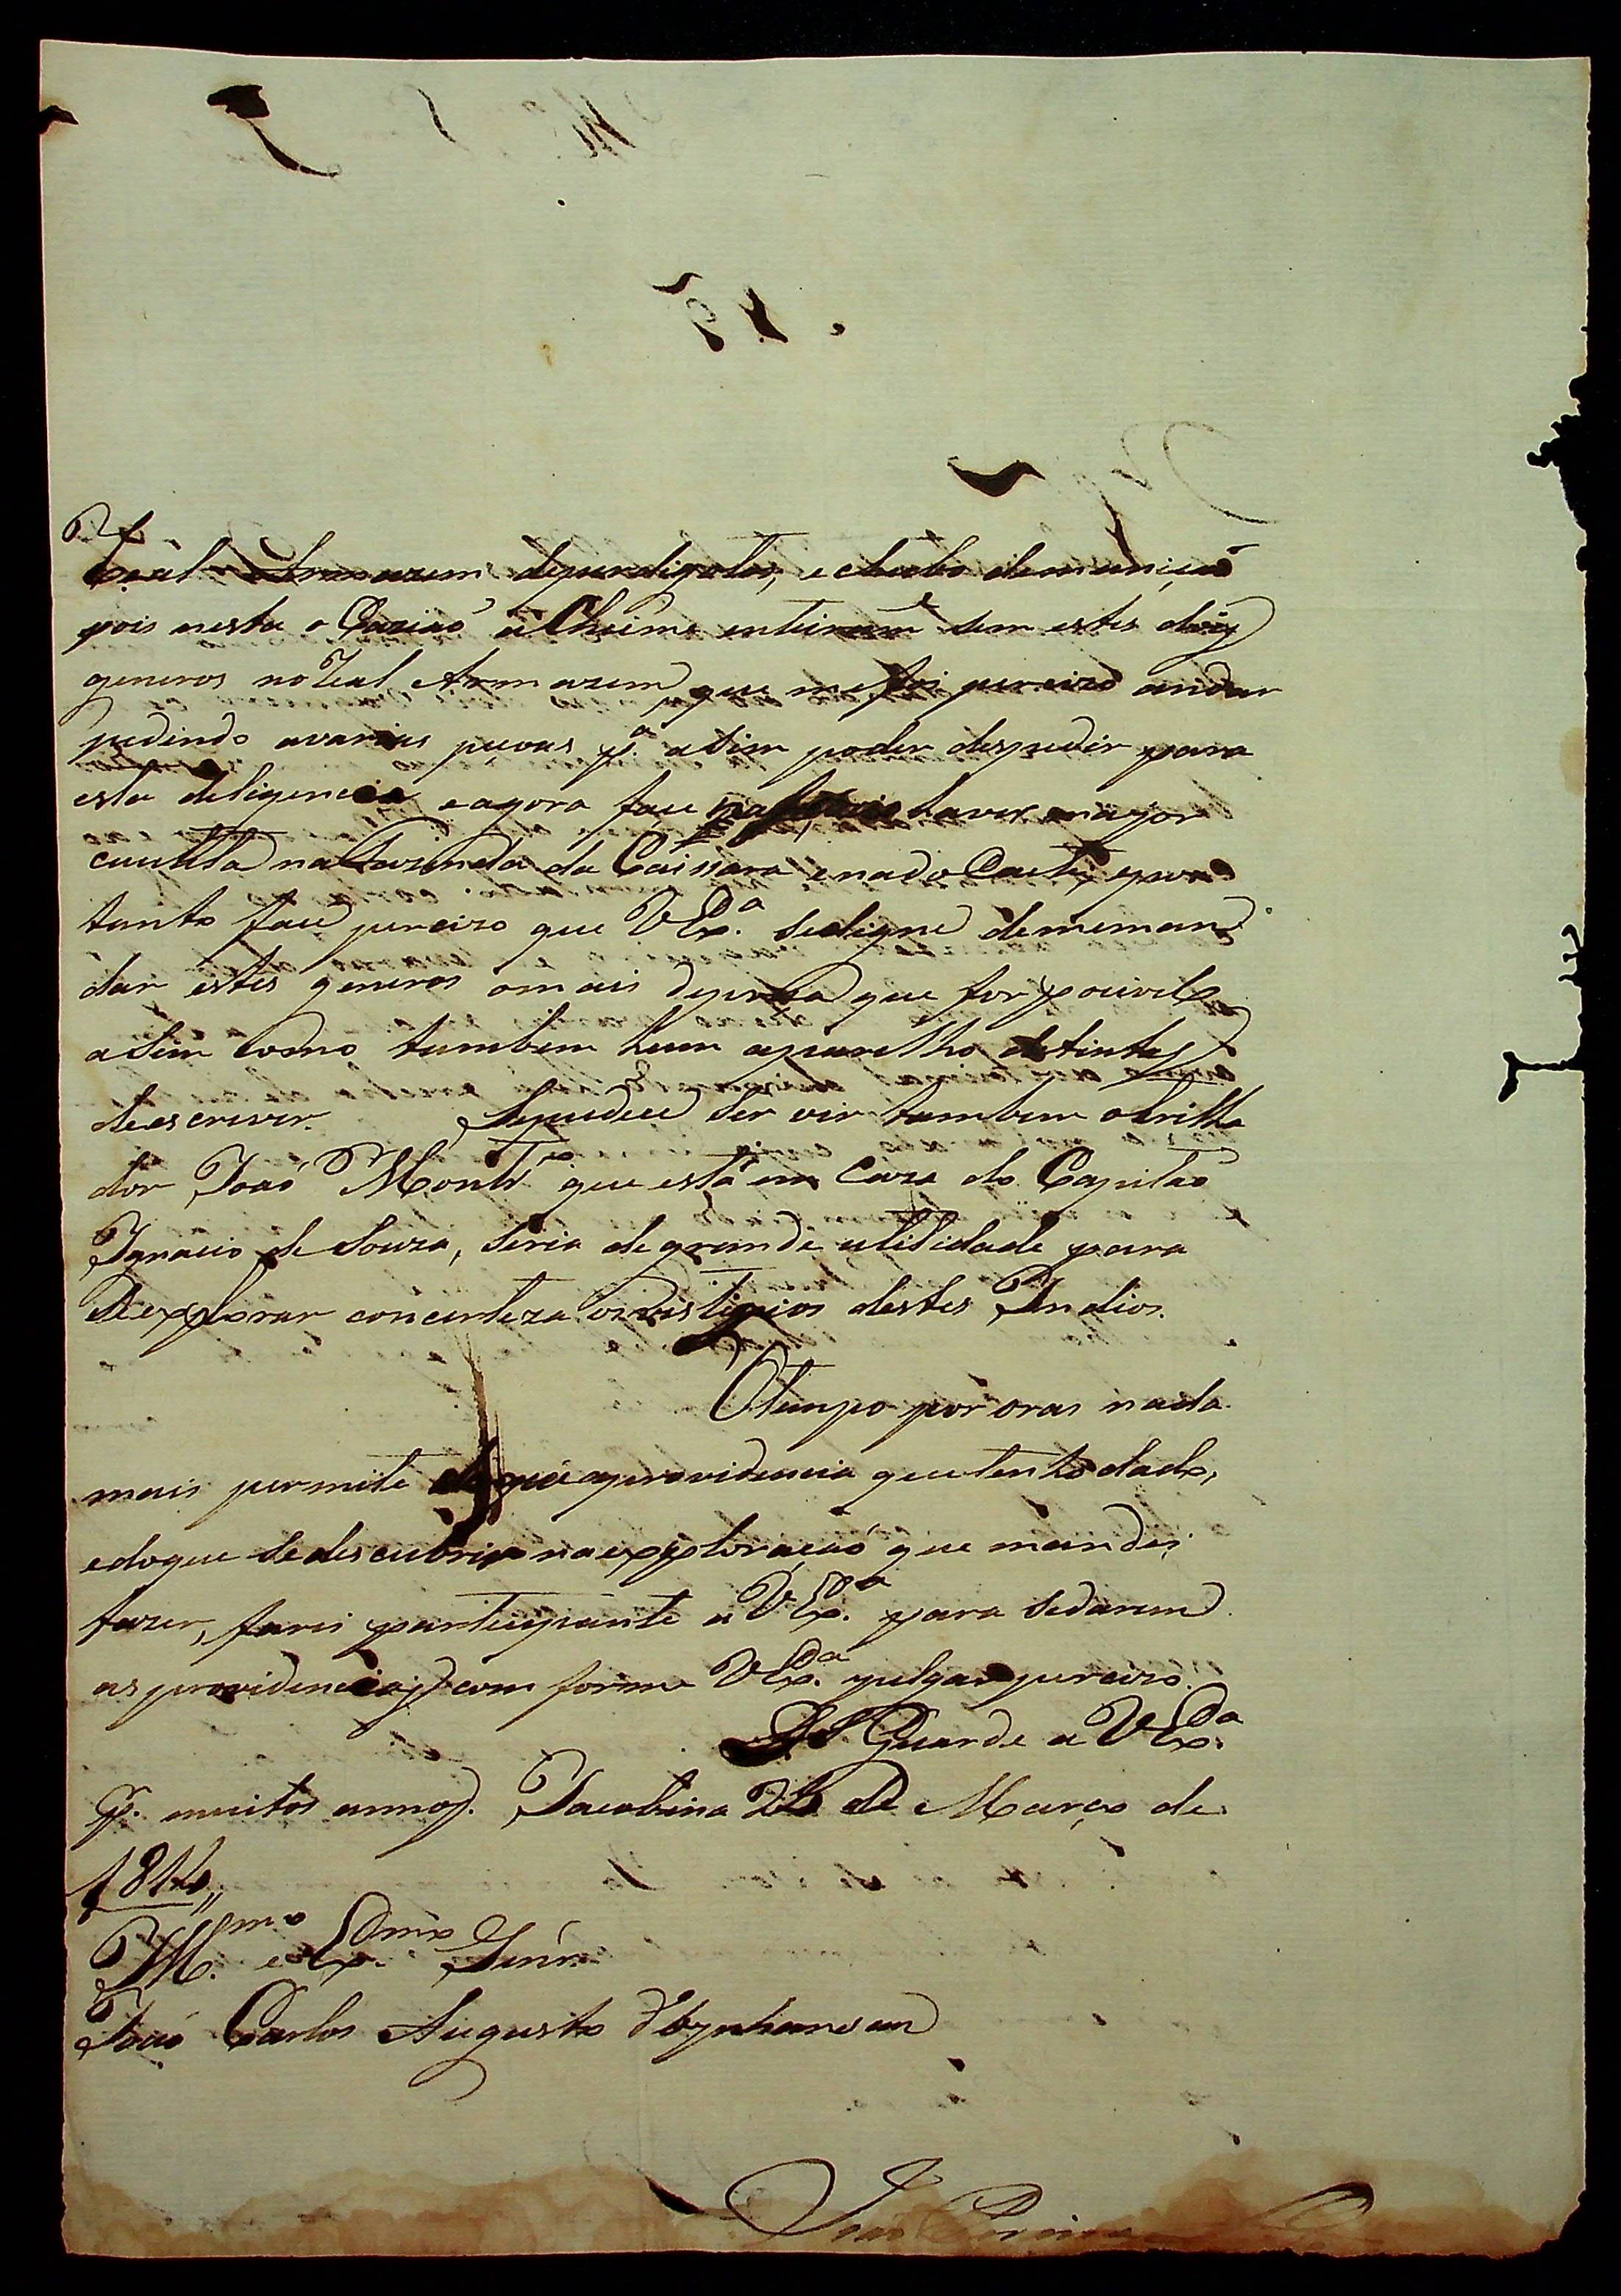 Real Armazem deperdigotos, e chubo demuniçaõ
pois nesta o Caziaõ a Cheime inteiram.e sem estes dois
generos no Real Armazem, que mefoi percizo andar
pedindo avarias peçoas p.a asim poder despedir para
esta deligencia eagora face haver mayor
cautela nafazenda da Caissara, enado e por
tanto face perciso que V Ex.a sedigne dememan
dar estes generos omais depreça que for poçivel,
asim como tambem hum aparelho detintas
deescrever. Sepudece ser vir tambem otrilha
dor Joaõ Montr.o que está em Caza do Capitaõ
Ignacio de Souza, seria degrande utilidade para
Sexplorar concerteza osvistigios destes Indios.
Otempo por oras nada
mais permite do que aprovidencia que tenho dado,
edoque sedescubrir naexploraçaõ que mandei
fazer, farei participante a V Ex.a para sedarem
as providencias com forme V Ex.a julgar perciso.
D.s Guarde a V Ex.a
p.r muitos annos. Jacobina de Março de
181
Ill.mo e Ex.mo Senr.
Joaõ Carlos Augusto d'Oyenhausen
Joaõ Pereira